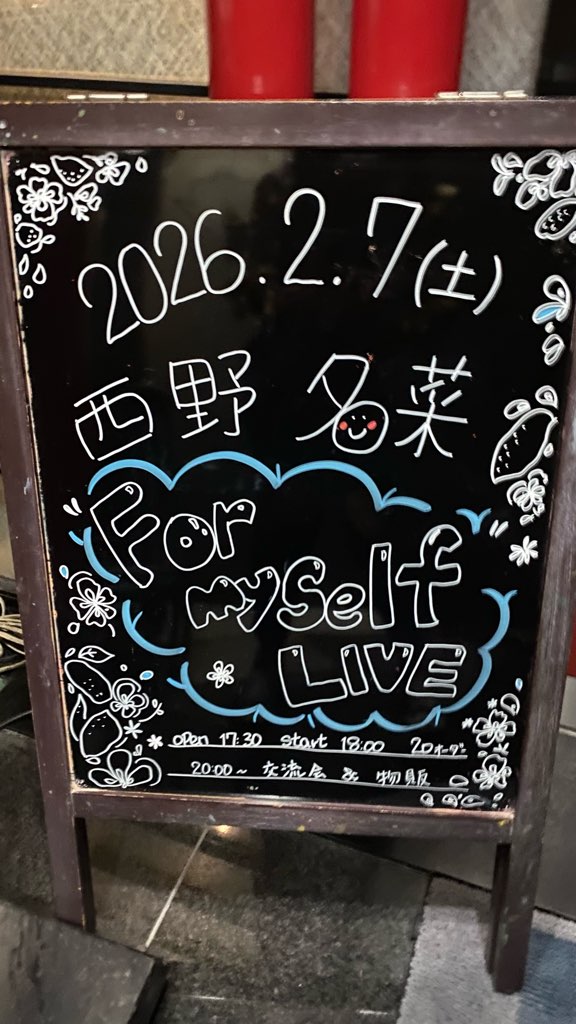 2026.2.7(土)
西野 名菜
For
myself
LIVE
open 17:30 start 18:00 2Dオーダー
20:00~ 交流会 & 物販